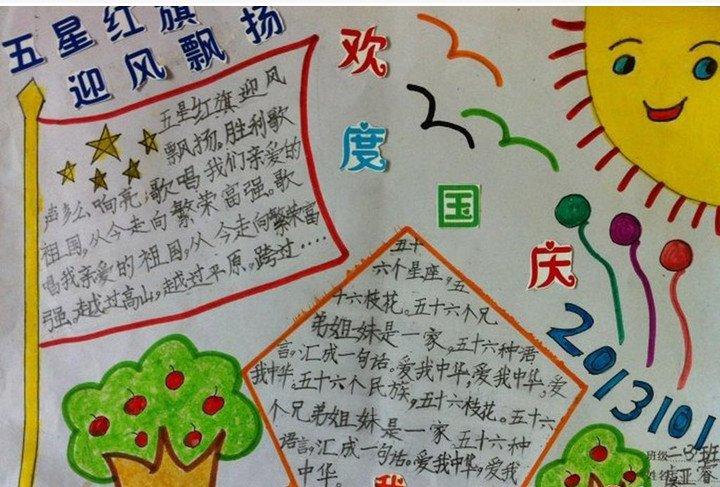 五星红旗
迎风飘扬
五星红旗迎风
飘扬。胜利歌
声多么响亮,歌唱我们亲爱的
祖国,从今走向繁荣富强。歌
唱我亲爱的祖国,从今走向繁荣富
强。越过高山,越过平原。跨过……
欢度国庆
五十
六个星座,五
十六枝花。五十六个兄
弟姐妹是一家,五十六种语
言,汇成一句话。爱我中华,爱我中华,爱
我中华,五十六个民族,五十六枝花。五十六
个兄弟姐妹是一家 五十六种
语言,汇成一句话。爱我中华,爱我
中华。
我
2013101
班级 二 班
姓名 亚睿